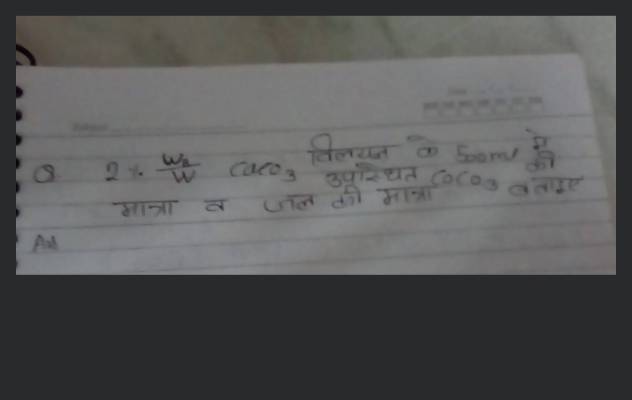 Q. 2% W2/W CaCO3 विलयन के 500ml मे
उपस्थित CaCO3 की
मात्रा व जल की मात्रा बताइए
Ans